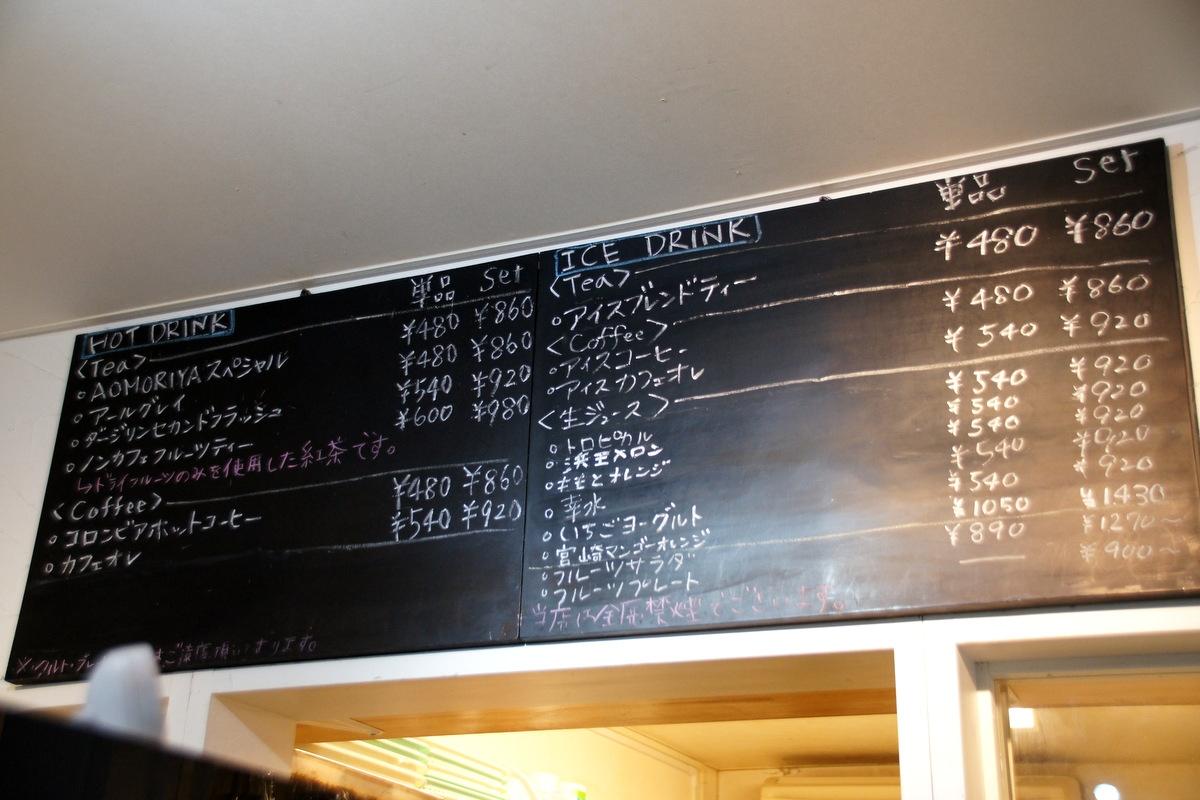 HOT DRINK 単品 Set
<Tea>
○AOMORIYAスペシャル ¥480 ¥860
○アールグレイ ¥480 ¥860
○ダージリンセカンドフラッシュ ¥540 ¥920
○ノンカフェフルーツティー ¥600 ¥980
↳ドライフルーツのみを使用した紅茶です。
<Coffee>
○コロンビアホットコーヒー ¥480 ¥860
○カフェオレ ¥540 ¥920
ICE DRINK 単品 Set
<Tea>
○アイスブレンドティー ¥480 ¥860
<Coffee>
○アイスコーヒー ¥480 ¥860
○アイスカフェオレ ¥540 ¥920
<生ジュース>
○トロピカル ¥540 ¥920
○メロン ¥540 ¥920
オレンジ ¥540 ¥920
○幸水 ¥540 ¥920
○いちごヨーグルト ¥540 ¥920
○宮崎マンゴーオレンジ ¥1050 ¥1430
○フルーツサラダ ¥890 ¥1270~
○フルーツプレート ¥900~
当店は全席禁煙でございます。